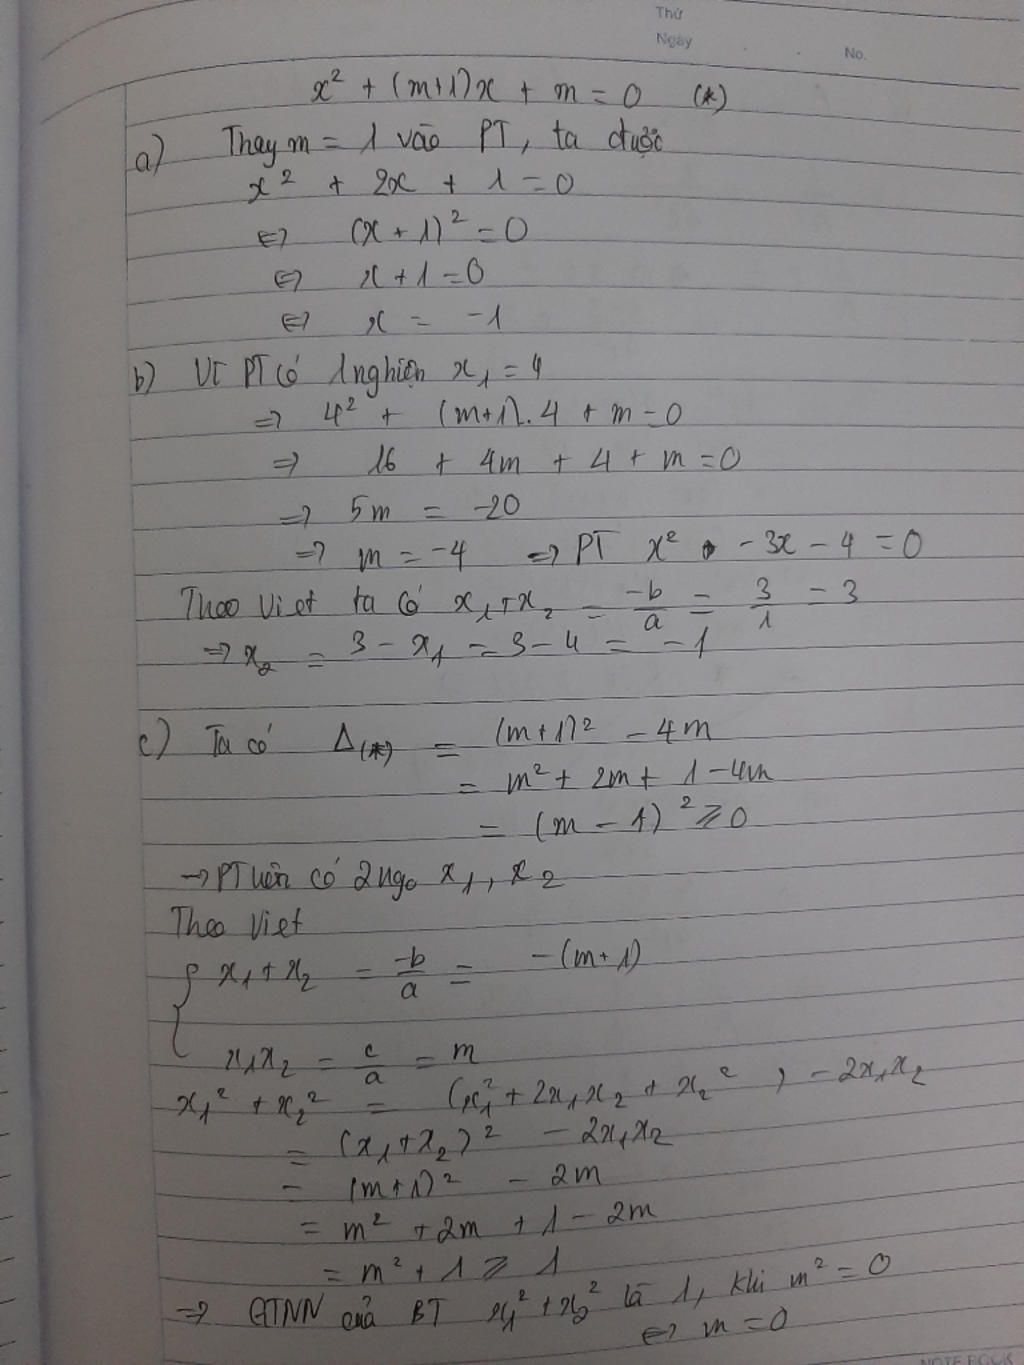 Thứ
Ngày
No.
x² + (m+1)x + m = 0 (*)
a) Thay m = 1 vào PT, ta được
x² + 2x + 1 = 0
⇔ (x + 1)² = 0
⇔ x + 1 = 0
⇔ x = -1
b) Vì PT có 1 nghiện x₁ = 4
⇒ 4² + (m+1).4 + m = 0
⇒ 16 + 4m + 4 + m = 0
⇒ 5m = -20
⇒ m = -4 ⇒ PT x² - 3x - 4 = 0
Theo Viet ta có x₁ + x₂ = -b/a = 3/1 = 3
⇒ x₂ = 3 - x₁ = 3 - 4 = -1
c) Ta có Δ(*) = (m+1)² - 4m
= m² + 2m + 1 - 4m
= (m - 1)² ⩾ 0
→ PT luôn có 2 ngo x₁, x₂
Theo Viet
{ x₁ + x₂ = -b/a = -(m+1)
x₁x₂ = c/a = m
x₁² + x₂² = (x₁² + 2x₁x₂ + x₂²) - 2x₁x₂
= (x₁ + x₂)² - 2x₁x₂
= (m+1)² - 2m
= m² + 2m + 1 - 2m
= m² + 1 ⩾ 1
⇒ GTNN của BT x₁² + x₂² là 1, khi m² = 0
⇔ m = 0
NOTE BOOK